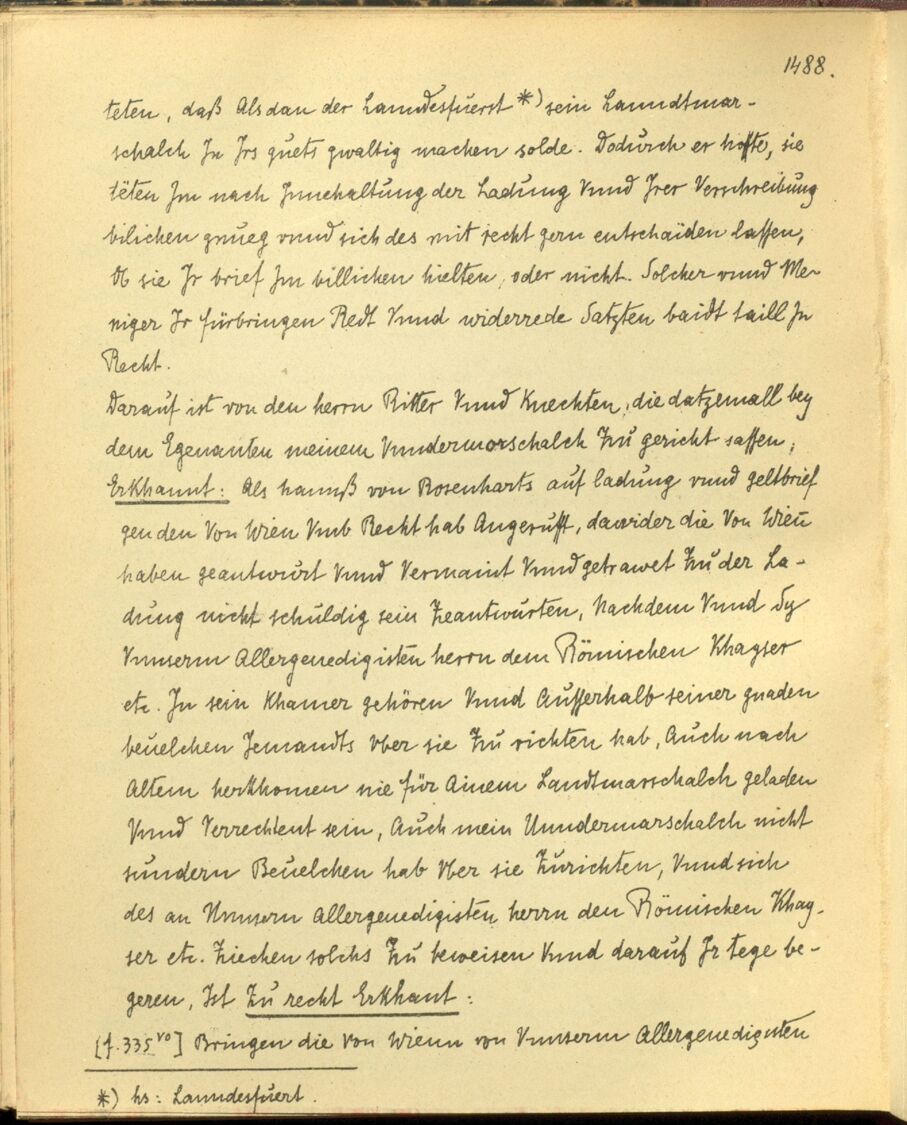 1488.
teten, daß Alsdan der Lanndesfuerst *) sein Lanndtmar-
schalch In Irs guets gwaltig machen solde. Dodurch er hoffte, sie
tëten Im nach Innehaltung der Ladung Vnnd Irer Verschreibung
bilichen gnueg vnnd sich des mit recht gern entschaiden lassen,
Ob sie Ir brief Im billichen hielten, oder nicht. Solcher vnnd Me-
niger Ir fürbringen Redt Vnnd widerrede Satzten baidt taill In
Recht.
Darauf ist von den herrn Ritter Vnnd Knechten, die datzemall bey
dem Egenanten meinem Vnndermorschalch Zu gericht sassen,
Erkhannt: Als hannß von Rosenharts auf ladung vnnd geltbrief
gen den Von Wien Vmb Recht hab Angerufft, dawider die Von Wien̄
haben geantwurt Vnnd Vermaint Vnnd getrawet Zu der La-
dung nicht schuldig sein Zeantwurten, Nachdem Vnnd Sy
Vnnserm Allergenedigisten herrn dem Römischen Khayser
etc. In sein Khamer gehören Vnnd Ausserhalb seiner gnaden
beuelchen Jemandts vber sie Zu richten hab, Auch nach
Altem herkhomen nie für Ainem Landtmarschalch geladen
Vnnd Verrechtent sein, Auch mein Unndermarschalch nicht
sundern Beuelchen hab Vber sie Zurichten, Vnnd sich
des an Unnsern Allergenedigisten herrn den Römischen Khay-
ser etc. Ziechen solchs Zu beweisen Vnnd darauf Ir tege be-
geren, Ist Zu recht Erkhant:
[f. 335 vo] Bringen die Von Wienn von Vnnserm Allergenedigisten
*) hs: Lanndesfuert.